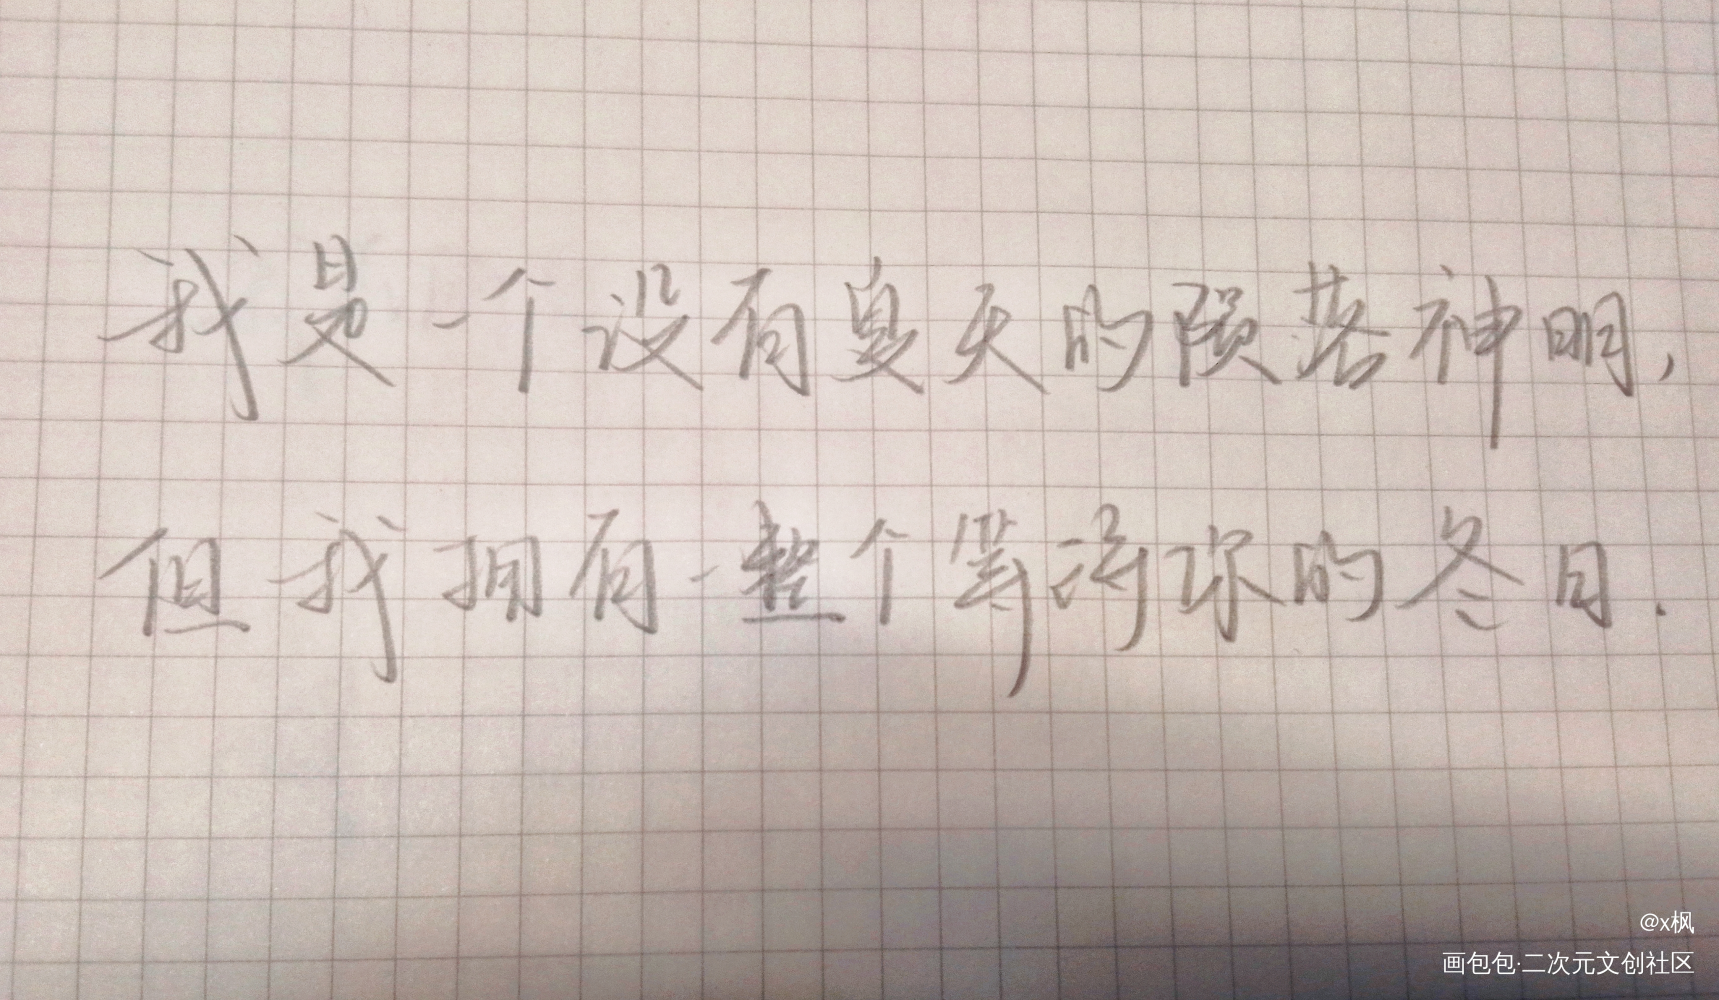 我是一个没有夏天的陨落神明,
但我拥有一整个等待你的冬日.
@x枫
画包包·二次元文创社区